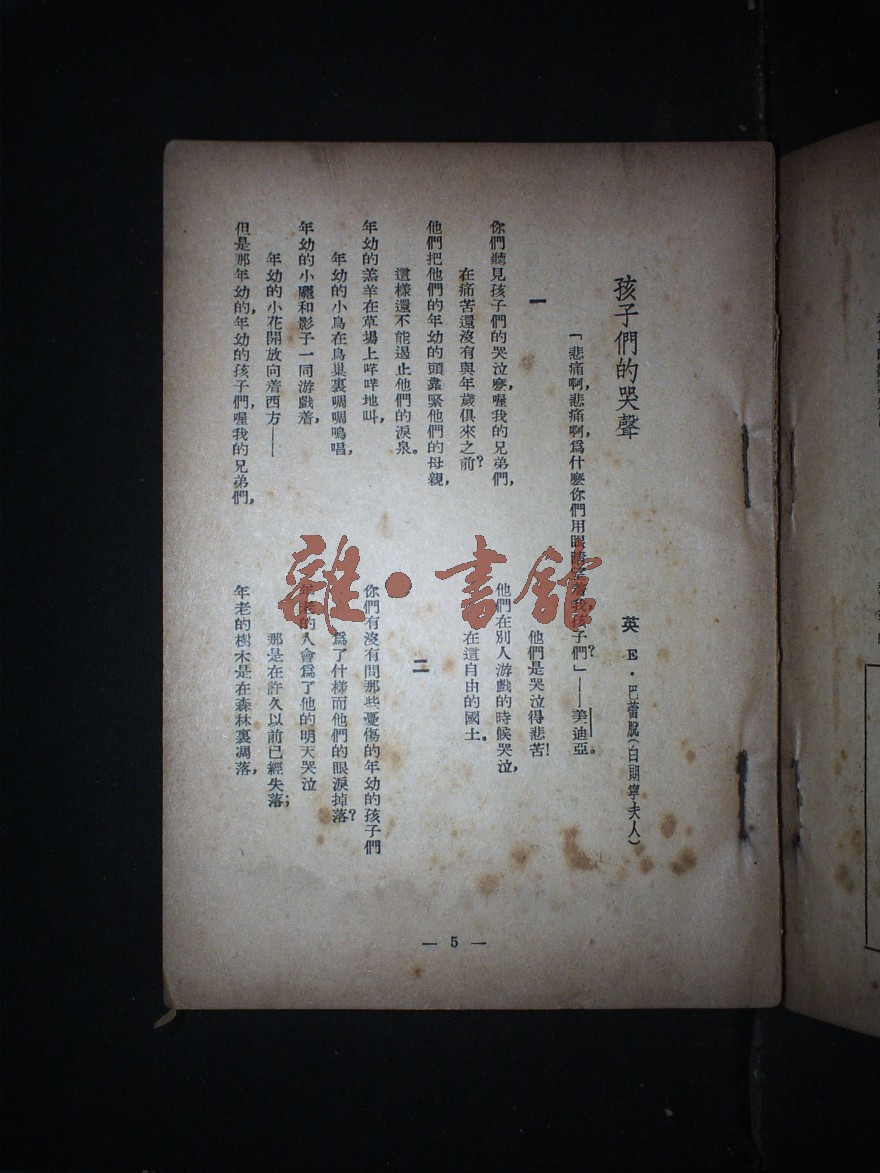 孩子們的哭聲
英 E·巴蕾脫(白朗寧夫人)
「悲痛啊,悲痛啊,爲什麼你們用眼睛望着我,孩子們?」——美迪亞。
一
你們聽見孩子們的哭泣麼,喔我的兄弟們,
在痛苦還沒有與年歲俱來之前?
他們把他們的年幼的頭靠緊他們的母親,
這樣還不能遏止他們的淚泉。
年幼的羔羊在草場上咩咩地叫,
年幼的小鳥在鳥巢裏啁啁鳴唱,
年幼的小麑和影子一同游戲着,
年幼的小花開放向着西方——
但是那年幼的,年幼的孩子們,喔我的兄弟們,
他們是哭泣得悲苦!
他們在別人游戲的時候哭泣,
在這自由的國土。
二
你們有沒有問那些憂傷的年幼的孩子們
爲了什樣而他們的眼淚掉落?
年老的人會爲了他的明天哭泣
那是在許久以前已經失落;
年老的樹木是在森林裏凋落,
— 5 —
雜·書館